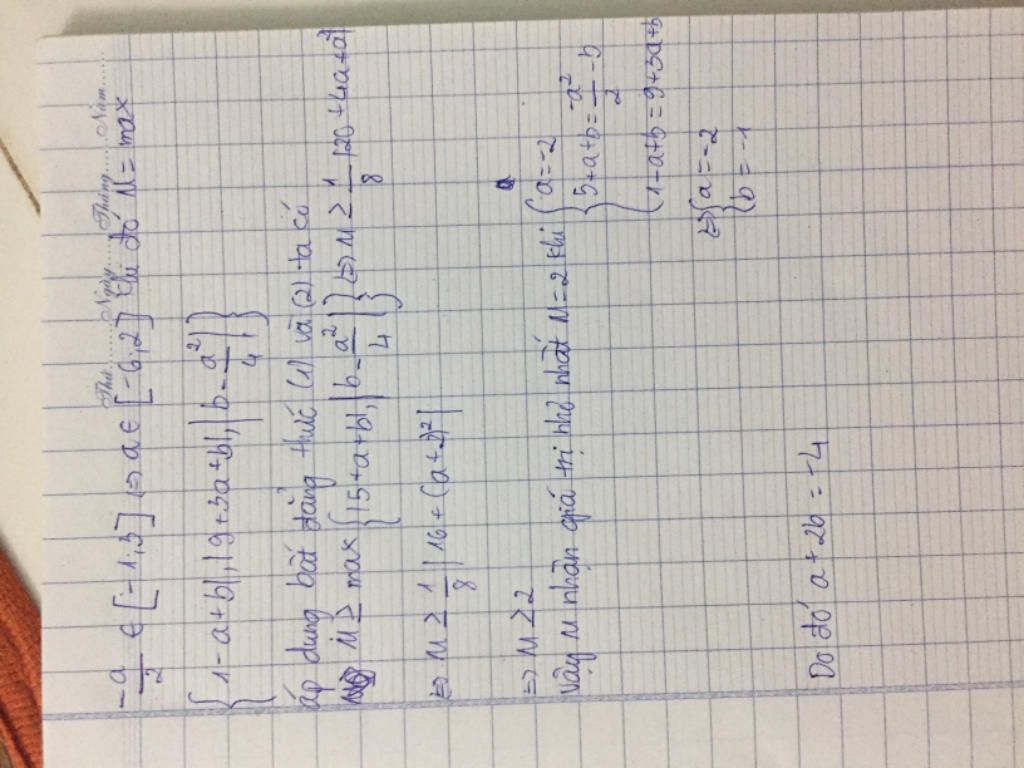 Thứ.......Ngày.......Tháng.......Năm.......
-a/2 ∈ [-1;3] ⇔ a ∈ [-6;2] Khi đó M = max
{|1-a+b|,|9+3a+b|,|b-a²/4|}
áp dụng bất đẳng thức (1) và (2) ta có
M ≥ max {|5+a+b|,|b-a²/4|} ⇔ M ≥ 1/8 |20+4a+a²|
⇔ M ≥ 1/8 |16+(a+2)²|
⇒ M ≥ 2
Vậy M nhận giá trị nhỏ nhất M=2 khi { a=-2
5+a+b = -a²/2 -b
1-a+b = 9+3a+b
⇔ { a=-2
b=-1
Do đó a+2b=-4